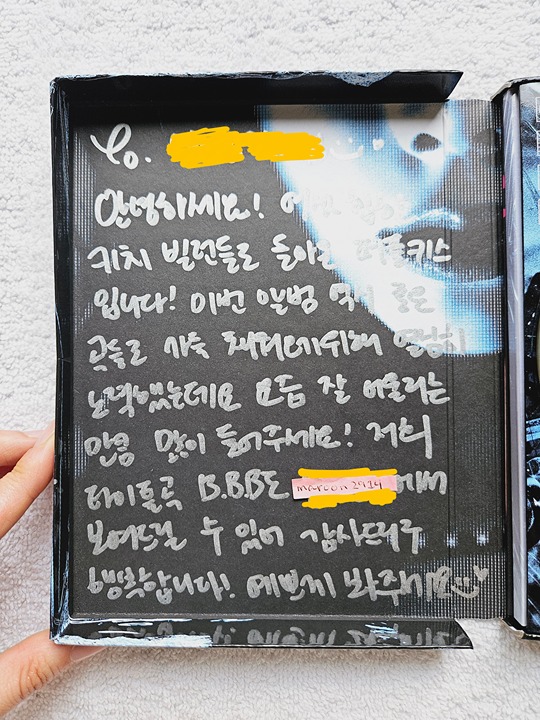 To.
안녕하세요!
키치 빌런들로 돌아온 퍼플키스
입니다! 이번 앨범 역시
곡들로 가득 열심히
노력했는데요 모듬 잘 어울리는
만큼 많이 들어주세요! 저희
타이틀곡 B.B.B도 maroon2914 에서
보여드릴 수 있어 감사드리구
행복합니다! 예쁘게 봐주세요